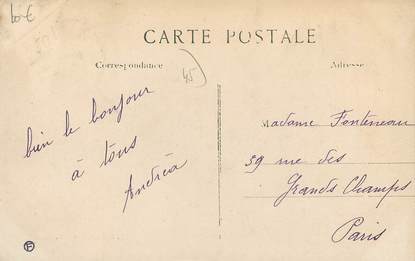 10-€
CARTE POSTALE
Correspondance
45
Adresse
bien le bonjour
à tous
Andréa
Madame Fonteneau
59 rue des
Grands Champs
Paris
F